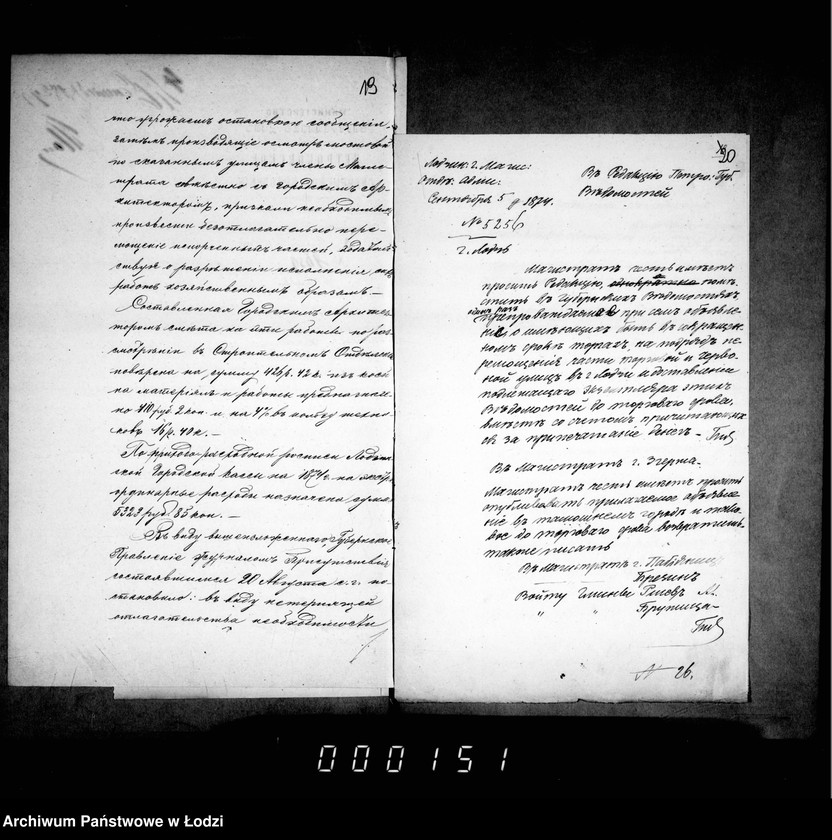 19
что угрожаетъ остановкою сообщенія,
затѣмъ производящіе осмотръ мостовой
по сказаннымъ улицамъ члены Маги-
страта совмѣстно съ Городскимъ Ар-
хитекторомъ, признали необходимымъ
произвести безотлагательно пере-
мощеніе испорченныхъ частей,
ствуя о разрѣшеніи исполненія
работъ хозяйственнымъ образомъ.—
Составленная Городскимъ Архитек-
торомъ смѣта на эти работы по раз-
смотрѣніи въ Строительномъ Отдѣленіи
повѣрена на сумму 426 р. 42 к. изъ коей
на матеріалъ и работы предназначе-
но 410 руб. 2 коп. и на 4% въ пользу техни-
ковъ 16 р. 40 к.—
По приходо-расходной росписи Лодзин-
ской Городской Кассы на 1874 г. на экстра-
ординарные расходы назначена сумма
5323 руб. 85 коп.—
Въ виду вышеизложеннаго Губернское
Правленіе журналомъ Присутствія
состоявшимся 20 Августа с. г. по-
становило: въ виду нетерпящей
отлагательства необходимости
20
Лодзин. г. Маги:
Отдѣл. Адми:
Сентября 5 д 1874.
№ 5256
г. Лодзь
Въ Редакцію Петро. Губ.
Вѣдомостей
Магистратъ честь имѣетъ
просить Редакцію, помѣ-
стить въ Губернскихъ Вѣдомостяхъ,
препровождаемое при семъ объявле-
ніе, о имѣющихъ быть въ сокращен-
номъ срокѣ торгахъ на подрядъ пе-
ремощенія части торговой и черво-
ной улицъ въ г. Лодзи и доставленіи
подлежащаго экземпляра этихъ
Вѣдомостей до торговаго срока,
вмѣстѣ со счетомъ причитающих-
ся за припечатаніе денегъ —
Въ Магистратъ г. Згержа.
Магистратъ честь имѣетъ просить
опубликовать прилагаемое объявле-
ніе въ тамошнемъ городѣ и тако-
вое до торговаго срока возвратить.
также писать
Въ Магистратъ г. Пабіяницъ
Брезинъ
Войту Гмины Радогощъ
" " Бружица
№ 26.
000151
Archiwum Państwowe w Łodzi